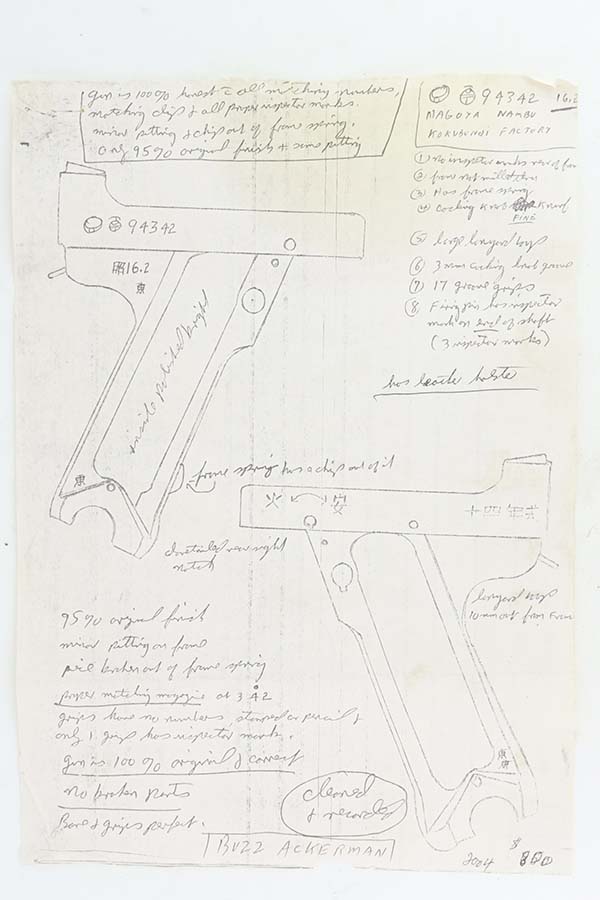 gun is 100% honest & all matching numbers,
matching clip & all proper inspector marks.
minor pitting & chip out of frame spring.
only 95% original finish & some pitting
94342 16.2
NAGOYA NAMBU
KOKUBUNJI FACTORY
① no inspector marks rear of frame
② frame not milled
③ Has frame spring
④ Cocking knob knurl
FINE
⑤ large lanyard loop
⑥ 3 mm cocking knob groove
⑦ 17 groove grips
⑧ Firing pin has inspector
mark on end of shaft
(3 inspector marks)
has leather holster
94342
昭16.2
東
inside polished bright
東
frame spring has a chip out of it
dovetailed rear right
notch
火 安
十四年式
lanyard loop
10 mm out from Frame
東
95% original finish
minor pitting on frame
piece broken out of frame spring
proper matching magazine at 342
grips have no numbers, stamped or pencil &
only 1 grip has inspector mark.
gun is 100% original & correct
no broken parts
Bore & grips perfect.
cleaned
& recorded
BUZZ ACKERMAN
2004 $